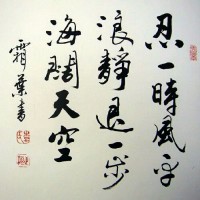 忍一時風平
浪靜退一步
海闊天空
霜葉書